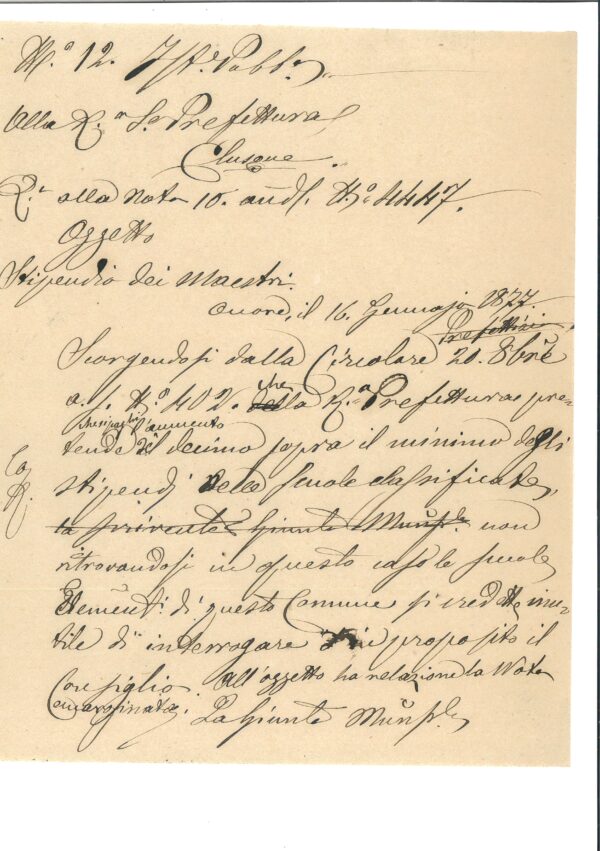 N.º 12. Ist.e Pubb.a
Alla R.a S.e Prefettura
Clusone.
R.a alla Nota 10. and.e N.º 4447.
Oggetto
Stipendio dei Maestri.
Onore, il 16. Gennajo 1877.
Prefettizia
Scorgendosi dalla Circolare 20. 8bre
a. s. N.º 402. che della R.a Prefettura pre-
che si paghi l'aumento
tende il decimo sopra il minimo degli
stipendj delle scuole classificate,
la scrivente Giunta Munple. non
ritrovandosi in questo caso le scuole
Element.i di questo Comune si credette inu-
tile di interrogare in proposito il
Consiglio. All'oggetto ha relazione la Nota
emarginata. La Giunta Munple